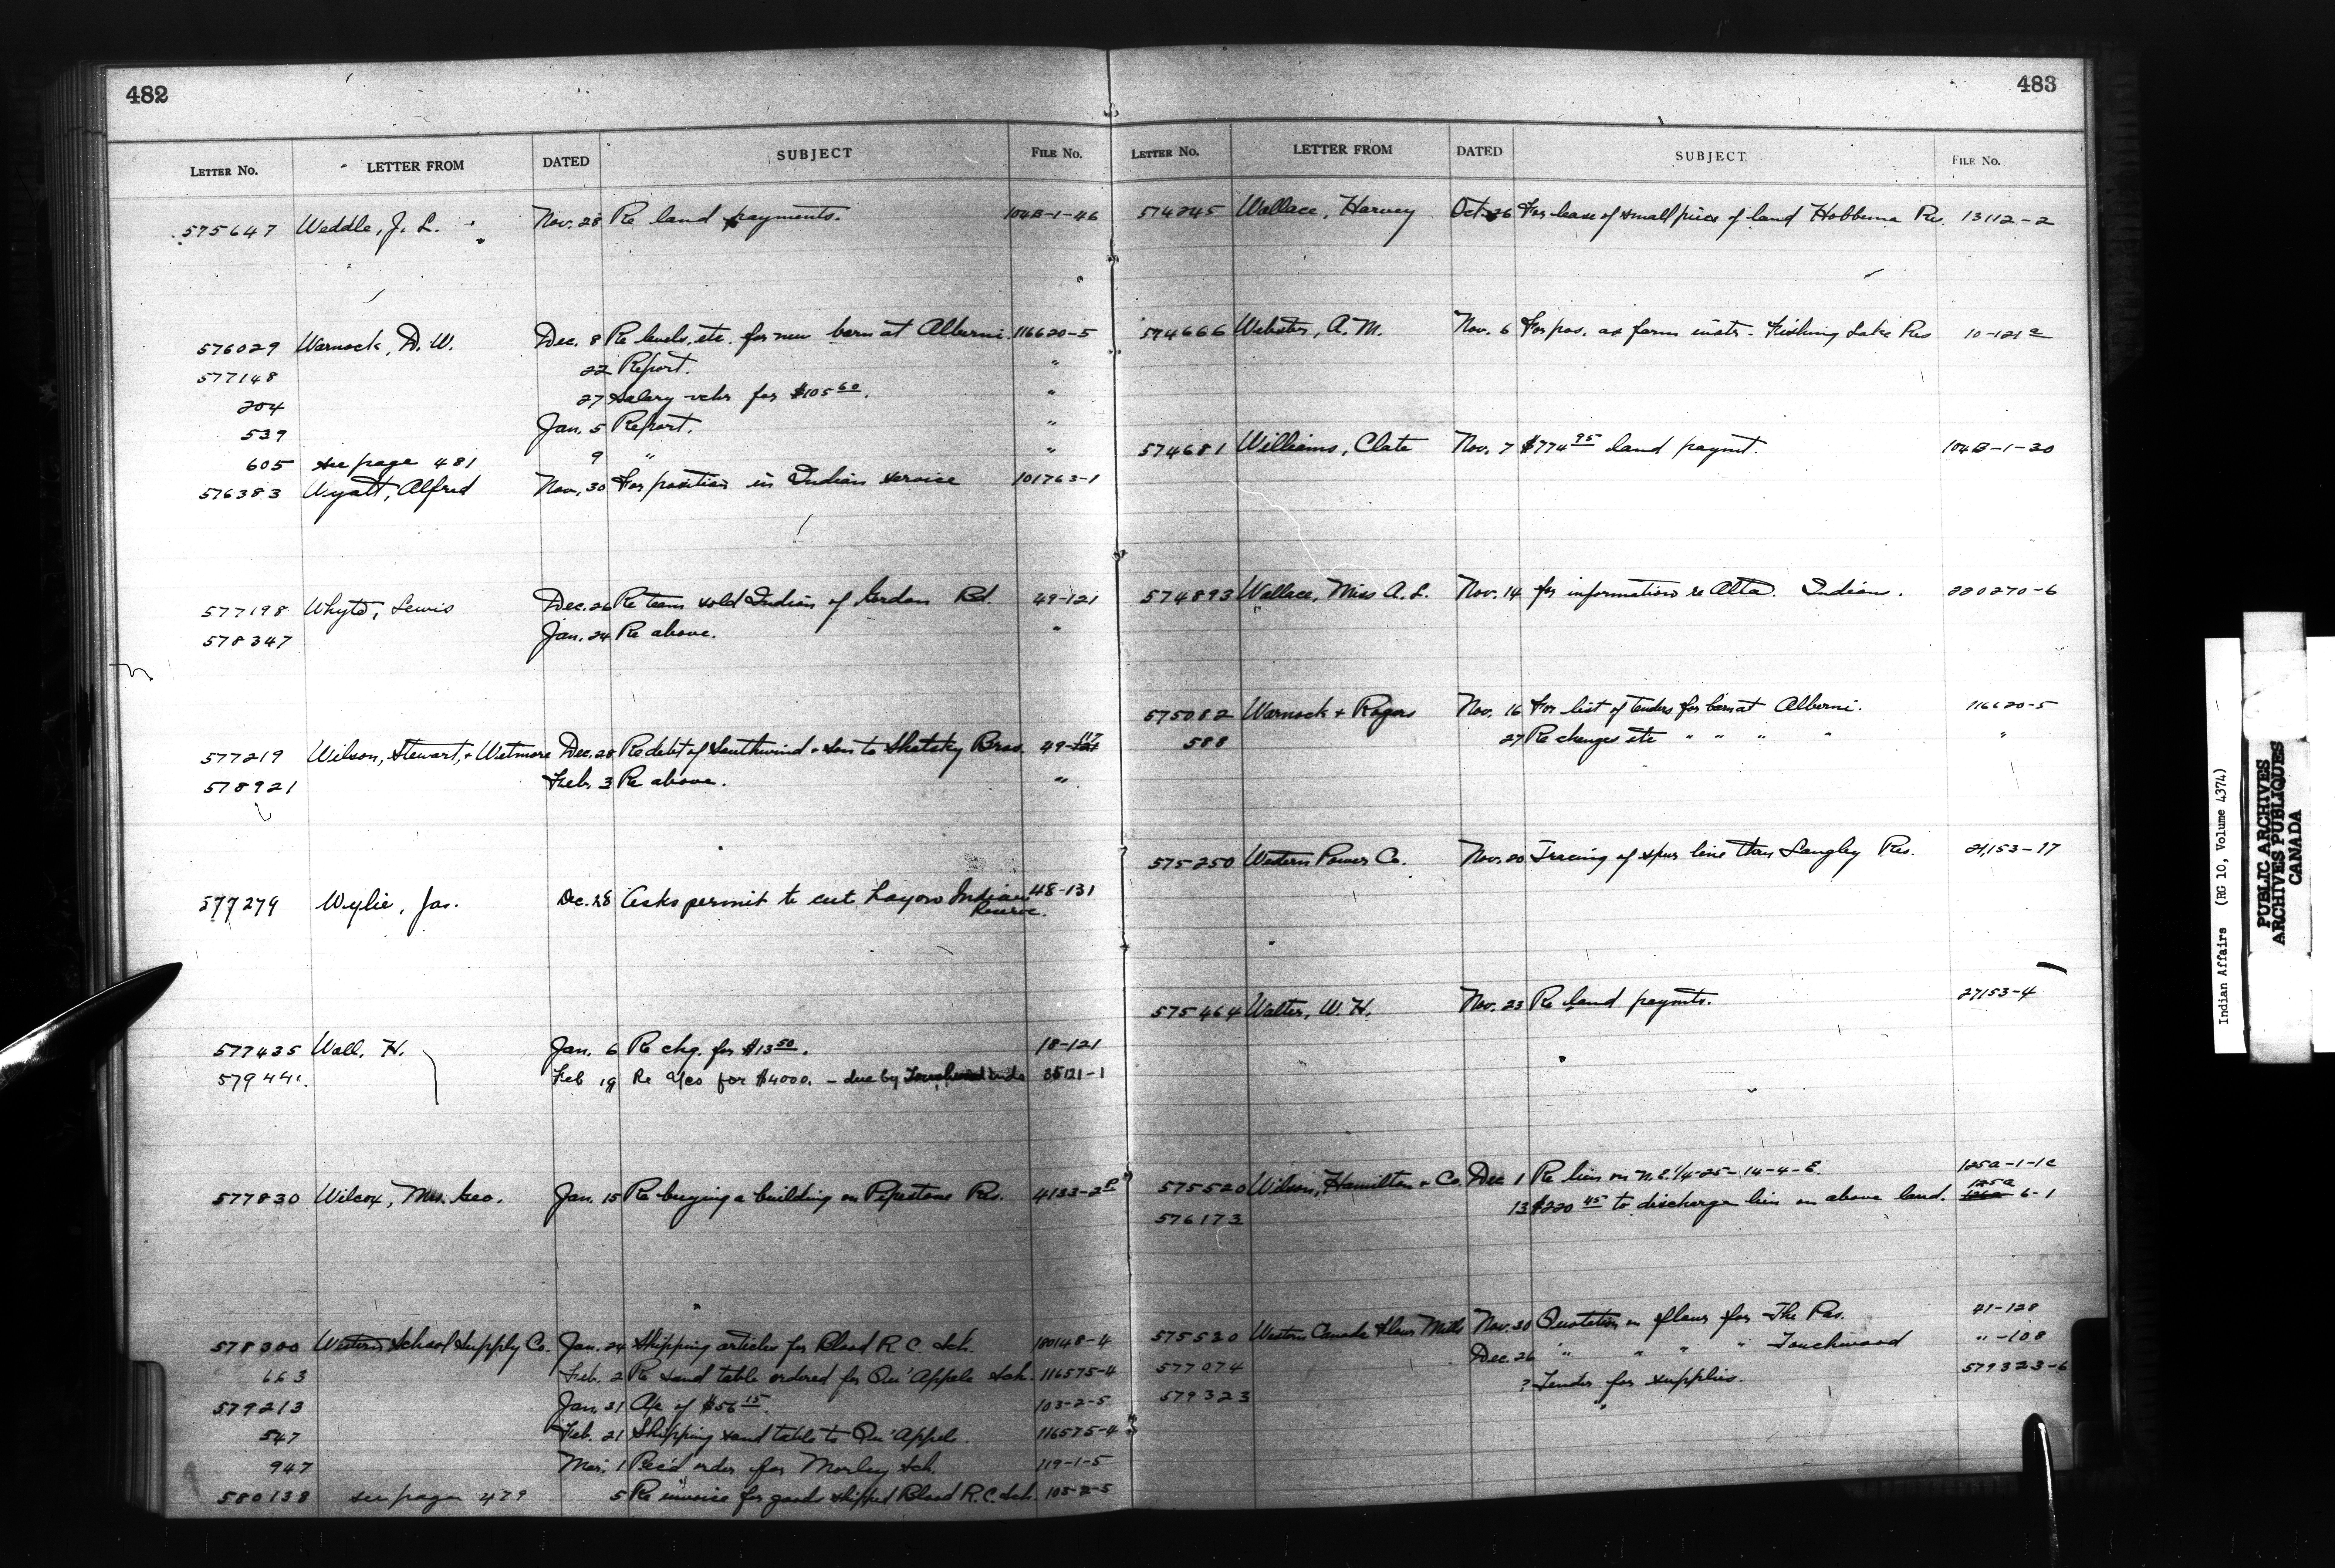 482
LETTER NO. LETTER FROM DATED SUBJECT FILE NO.
575647 Weddle, J. L. Nov. 28 Re land payments. 104B-1-46
576029 Warnock, D. W. Dec. 8 Re levels, etc. for new barn at Alberni. 116620-5
577148 22 Report. "
204 27 Salary vchr for $105 60. "
539 Jan. 5 Report. "
605 see page 481 9 " "
576383 Wyatt, Alfred Nov. 30 For position in Indian service 101763-1
577198 Whyte, Lewis Dec. 26 Re team sold Indian of Gordon Rd. 49-121
578347 Jan. 24 Re above. "
577219 Wilson, Stewart, & Wetmore Dec. 28 Re debt of Southwind & Son to Shatsky Bros. 49-117
578921 Feb. 3 Re above. "
577279 Wylie, Jas. Dec. 28 Asks permit to cut hay on Indian Reserve. 48-131
577435 Wall, H. Jan. 6 Re chg. for $13 50. 18-121
Feb 19 Re a/cs for $4000. - due by Touchwood inds 35121-1
577830 Wilcox, Mrs. Geo. Jan. 15 Re buying a building on Pipestone Res. 4133-2
578300 Western School Supply Co. Jan. 24 Shipping articles for Blood R. C. Sch. 180148-4
663 Feb. 2 Re sand table ordered for Qu'Appele Sch. 116575-4
579213 Jan. 31 A/c of $56 15. 103-2-5
547 Feb. 21 Shipping sand table to Qu'Appele. 116575-4
947 Mar. 1 Rec'd order for Morley Sch. 119-1-5
580138 see page 479 5 Re invoice for goods shipped Blood R. C. Sch. 103-2-5
483
LETTER NO. LETTER FROM DATED SUBJECT FILE NO.
574245 Wallace, Harvey Oct. 26 For lease of small piece of land Hobbema Re. 13112-2
574666 Webster, A. M. Nov. 6 For pos. as farm instr. Fishing Lake Res 10-121
574681 Williams, Clate Nov. 7 $774 95 land paymt. 104B-1-30
574893 Wallace, Miss A. L. Nov. 14 for information re Alta. Indians. 220270-6
575082 Warnock & Rogers Nov. 16 For list of tenders for barn at Alberni. 116620-5
588 27 Re changes etc " " " " "
575250 Western Power Co. Nov. 20 Tracing of spur line thru Langley Res. 21,153-17
575464 Walter, W. H. Nov. 23 Re land paymts. 27153-4
575520 Wilson, Hamilton & Co. Dec 1 Re lien on N.E. 1/4-25-14-4-E. 125a-1-1c
576173 13 $220 45 to discharge lien on above land. 125a 6-1
575530 Western Canada Flour Mills Nov. 30 Quotation on flour for The Pas. 41-128
577074 Dec. 26 " " " " Touchwood "-108
579323 ? Tender for supplies. 579323-6
Indian Affairs (RG 10, Volume 4374)
PUBLIC ARCHIVES
ARCHIVES PUBLIQUES
CANADA